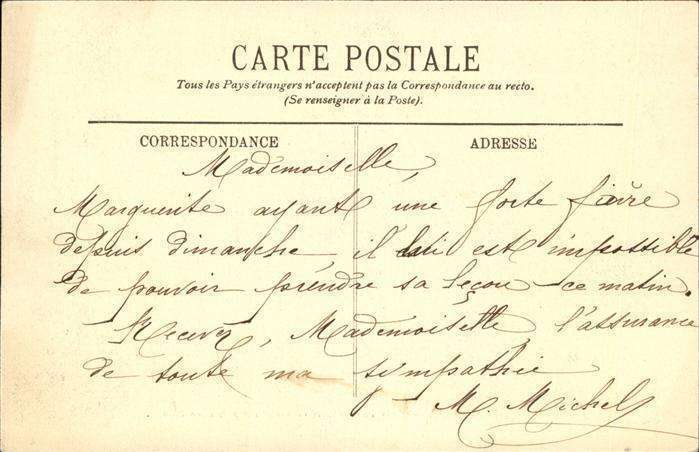 CARTE POSTALE
Tous les Pays étrangers n'acceptent pas la Correspondance au recto.
(Se renseigner à la Poste).
CORRESPONDANCE
ADRESSE
Mademoiselle,
Marguerite ayant une forte fièvre
depuis dimanche, il lui est impossible
de pouvoir prendre sa leçon ce matin.
Recevez, Mademoiselle, l'assurance
de toute ma sympathie
M. Michel